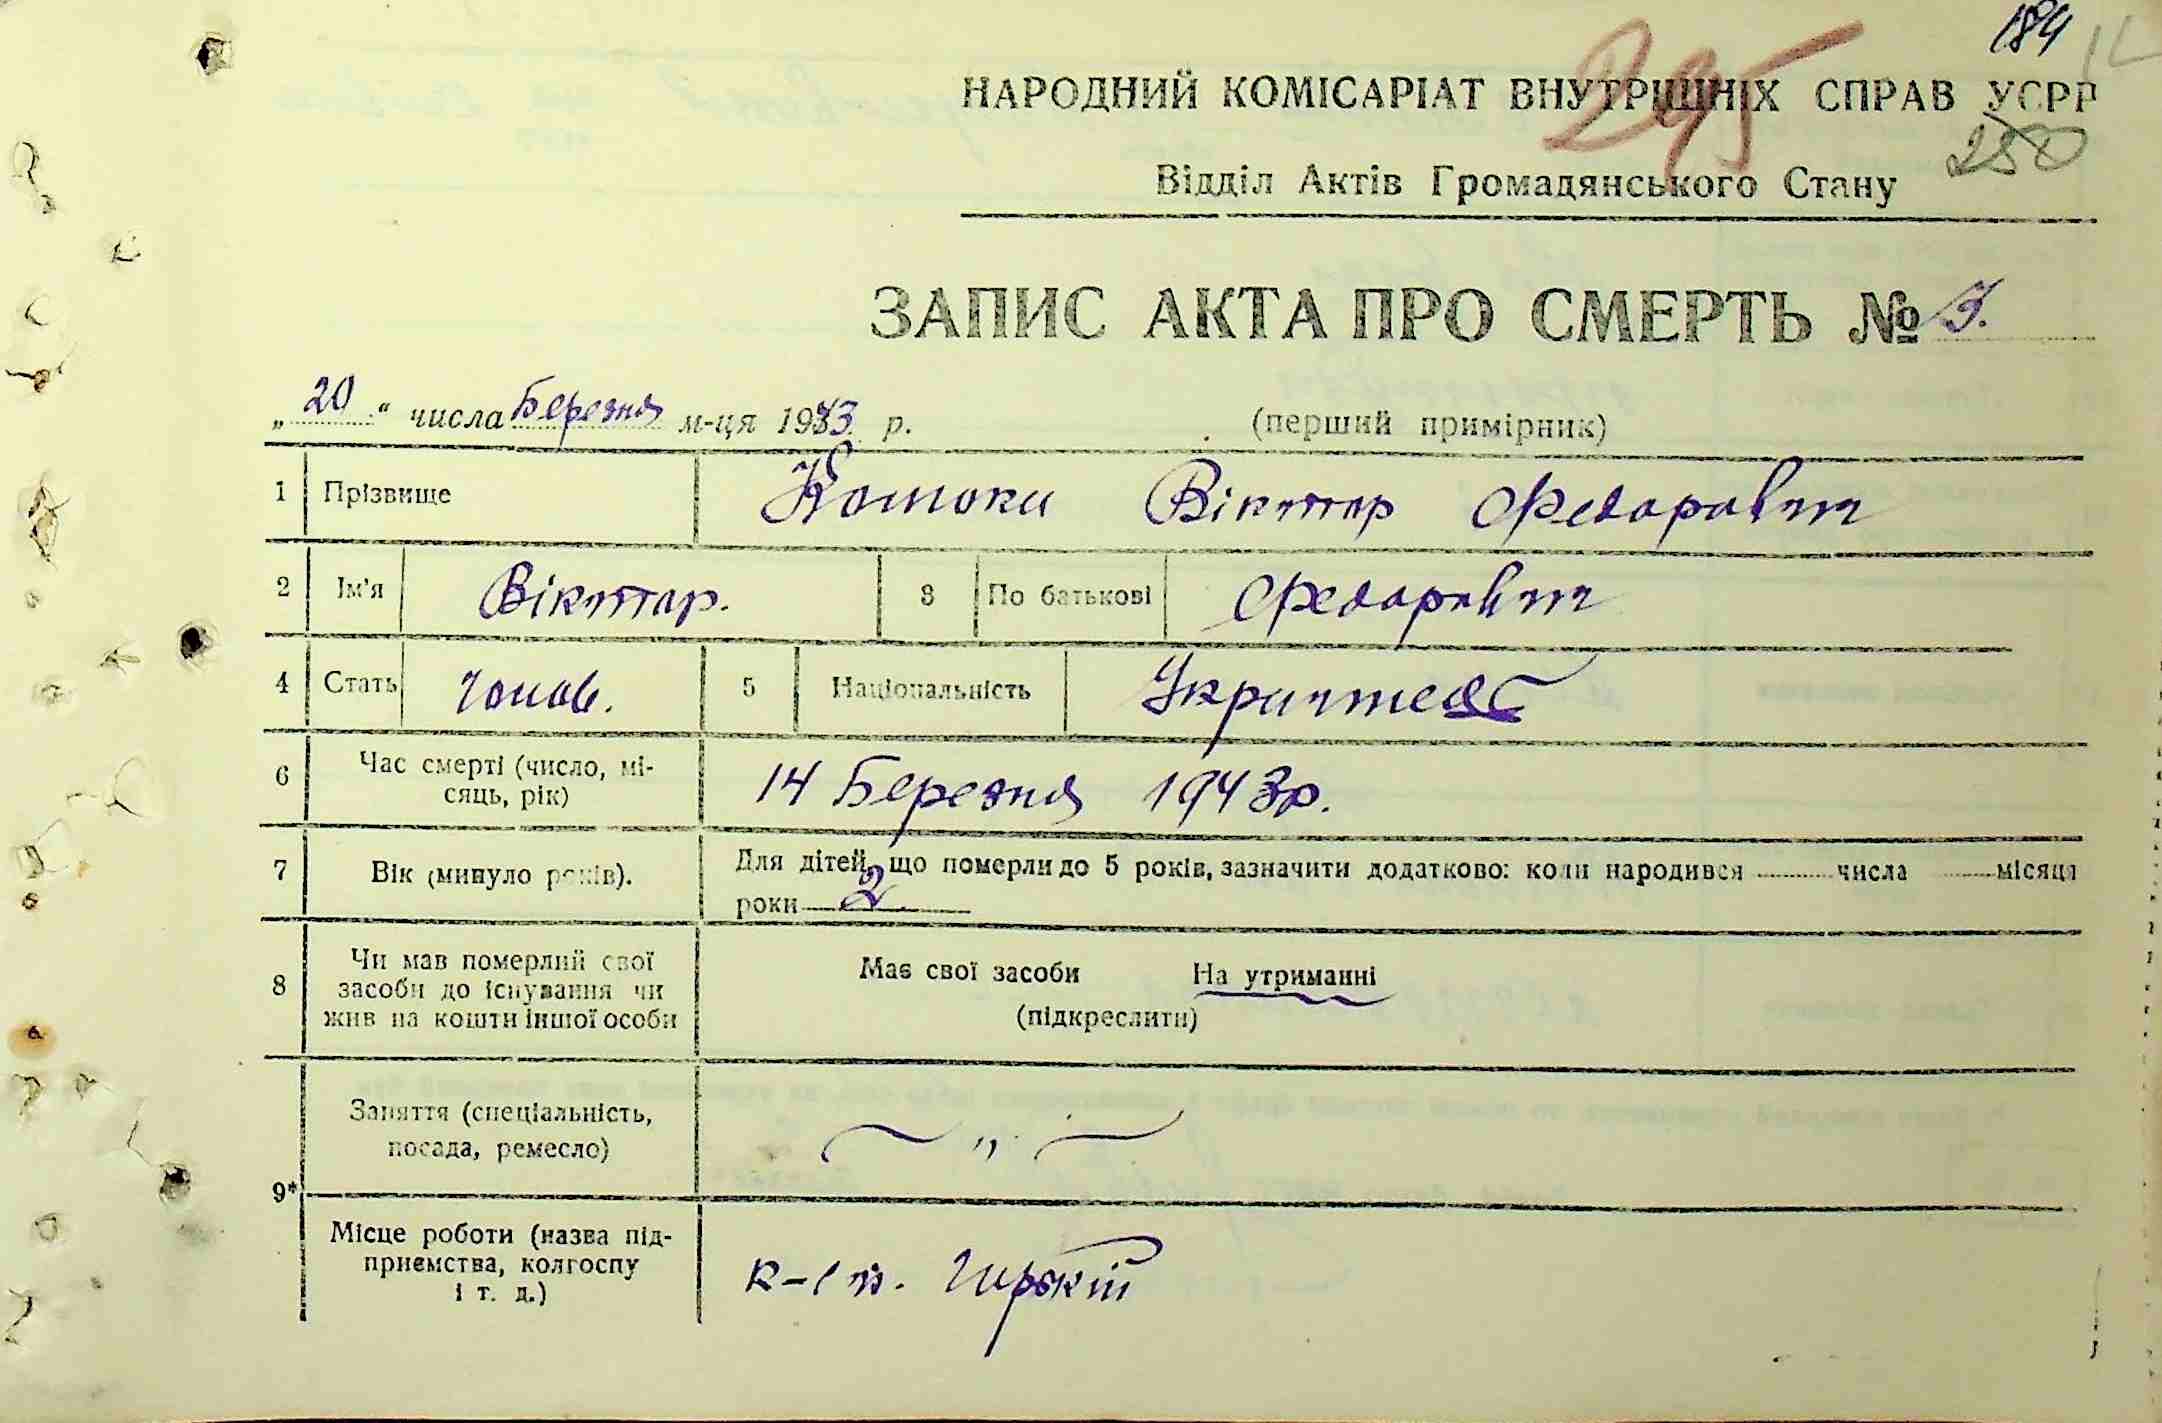 184
295
НАРОДНИЙ КОМІСАРІАТ ВНУТРІШНІХ СПРАВ УСРР
250
Відділ Актів Громадянського Стану
ЗАПИС АКТА ПРО СМЕРТЬ №
„20“ числа Березня м-ця 1943 р. (перший примірник)
1 Прізвище Віктор Федорович
2 Ім'я Віктор. 3 По батькові Федорович
4 Стать чолов. 5 Національність
6 Час смерті (число, мі-
сяць, рік) 14 Березня 1943 р.
7 Вік (минуло років). Для дітей, що померли до 5 років, зазначити додатково: коли народився числа місяця
роки 2.
8 Чи мав померлий свої
засоби до існування чи
жив на кошти іншої особи
Має свої засоби На утриманні
(підкреслити)
9*
Заняття (спеціальність,
посада, ремесло) — „ —
Місце роботи (назва під-
приємства, колгоспу
і т. д.)